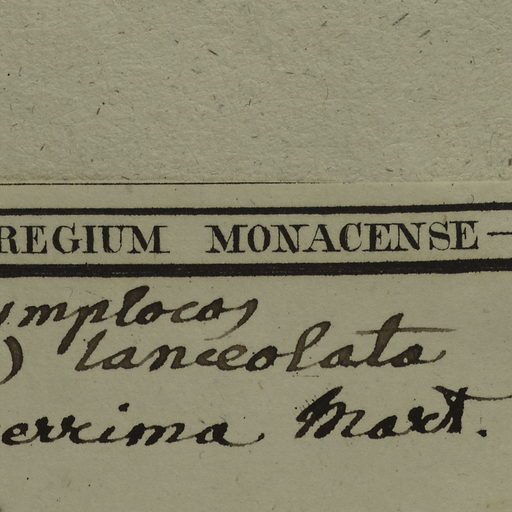 REGIUM MONACENSE —
ymplocos
) lanceolata
errima Mart.